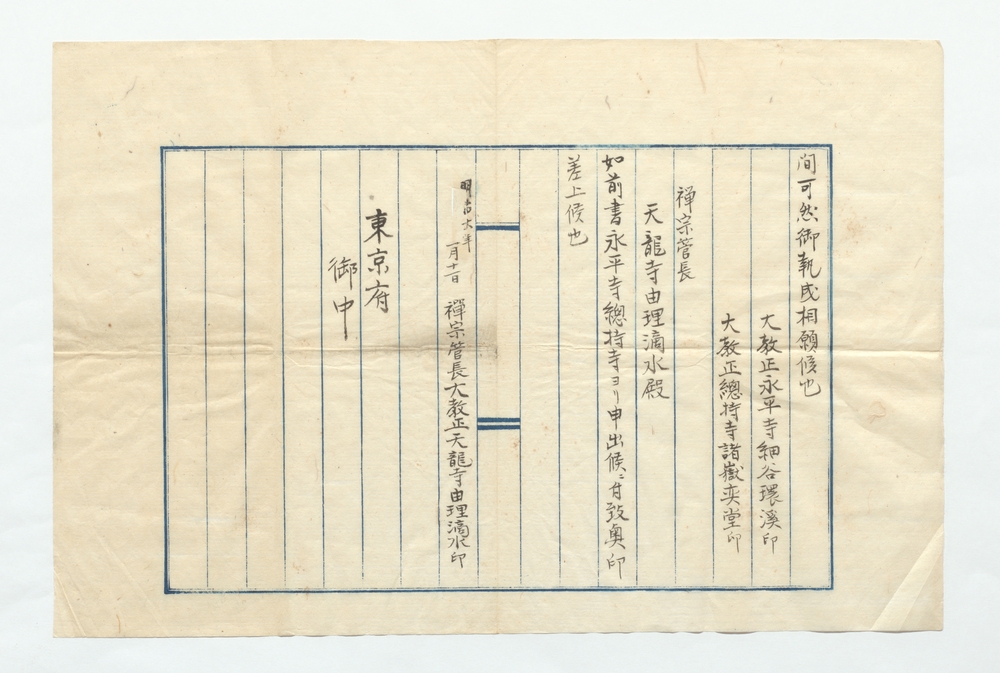 間可然御執成相願候也
大教正永平寺細谷環溪印
大教正總持寺諸嶽奕堂印
禅宗管長
天龍寺由理滴水殿
如前書永平寺總持寺ヨリ申出候ニ付致奥印
差上候也
明治六年
一月十日
禅宗管長大教正天龍寺由理滴水印
東京府
御中